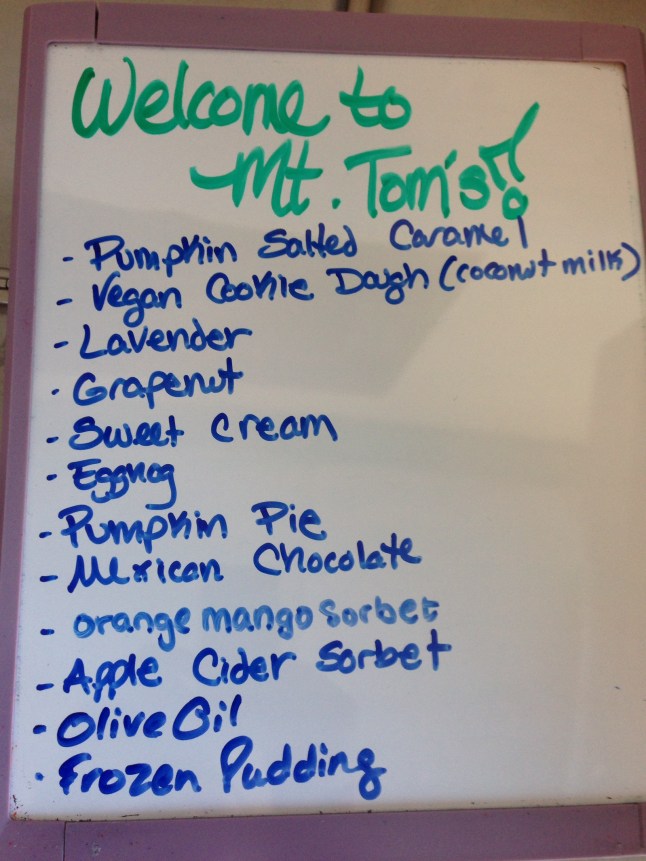 Welcome to
Mt. Tom's!
- Pumpkin Salted Caramel
- Vegan Cookie Dough (coconut milk)
- Lavender
- Grapenut
- Sweet Cream
- Eggnog
- Pumpkin Pie
- Mexican Chocolate
- orange mango sorbet
- Apple Cider Sorbet
- Olive Oil
- Frozen Pudding